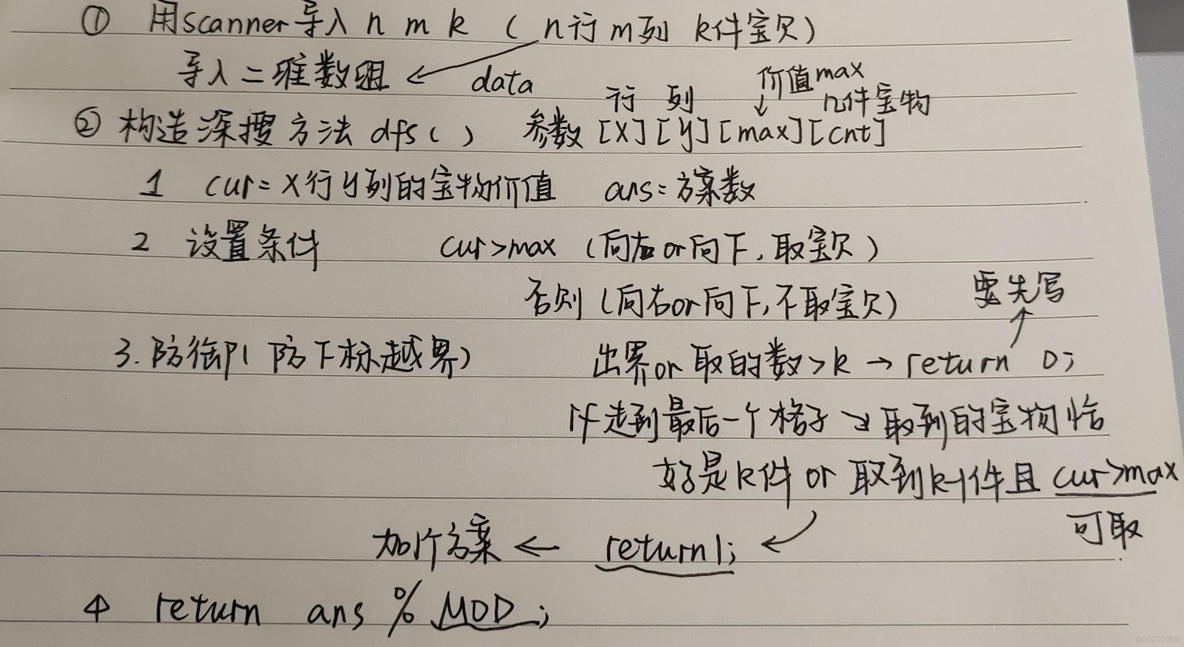 ① 用scanner导入 n m k （n行m列 k件宝贝）
导入二维数组 ← data
价值max
行 列 ↓ 几件宝物
② 构造深搜方法 dfs() 参数 [X][y][max][cnt]
1 cur=X行y列的宝物价值 ans=方案数
2 设置条件 cur>max （向右or向下,取宝贝）
否则（向右or向下,不取宝贝） 要先写
3.防御 防下标越界） 出界or取的数>k → return 0;
if走到最后一个格子 取到的宝物恰
好是k件 or 取到k-1件且 cur>max
可取
加1个方案 ← return1;
4 return ans % MOD;